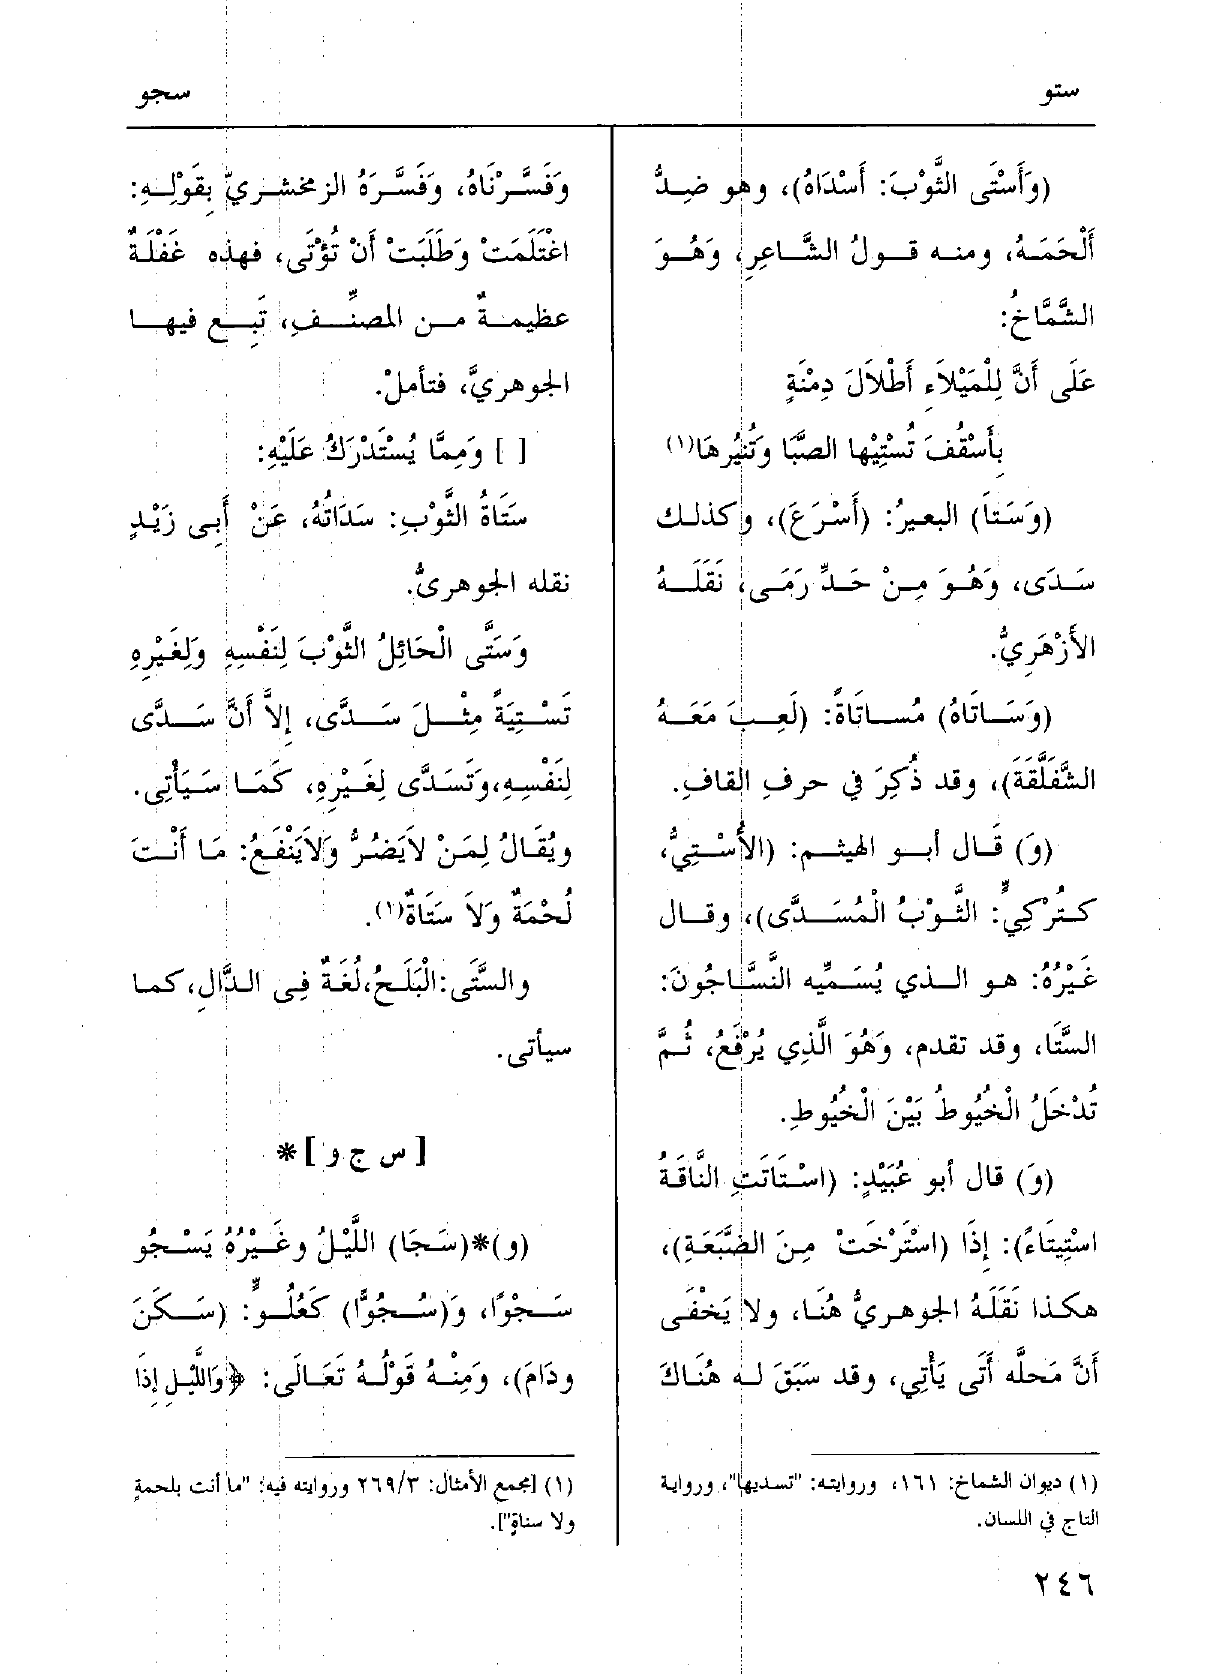 ستو
سجو
(وَأَسْتَى الثَّوْبَ: أَسْدَاهُ)، وهو ضِدُّ
أَلْحَمَهُ، ومنه قولُ الشَّاعِرِ، وَهُوَ
الشَّمَّاخُ:
عَلَى أَنَّ لِلْمَيْلاَءِ أَطْلاَلَ دِمْنَةٍ
بِأَسْقُفَ تُسْتِيْها الصبَّا وَتُنِيْرُهَا(١)
(وَسَتَا) البعيرُ: (أَسْرَعَ)، وكذلك
سَدَى، وَهُوَ مِنْ حَدِّ رَمَى، نَقَلَهُ
الأَزْهَرِيُّ.
(وَسَاتَاهُ) مُساتَاةً: (لَعِبَ مَعَهُ
الشَّفَلَّقَةَ)، وقد ذُكِرَ في حرفِ القافِ.
(وَ) قَال أبو الهيثم: (الأُسْتِيُّ،
كتُرْكِيٍّ: الثَّوْبُ الْمُسَدَّى)، وقال
غَيْرُهُ: هو الذي يُسَمِّيه النَّسَّاجُونَ:
السَّتَا، وقد تقدم، وَهُوَ الَّذِي يُرْفَعُ، ثُمَّ
تُدْخَلُ الْخُيُوطُ بَيْنَ الْخُيُوطِ.
(وَ) قال أبو عُبَيْدٍ: (اسْتَاتَتِ النَّاقَةُ
اسْتِيتَاءً): إِذَا (اسْتَرْخَتْ مِنَ الضَّبَعَةِ)،
هكذا نَقَلَهُ الجوهريُّ هُنَا، ولا يَخْفَى
أَنَّ مَحلَّه أَتَى يَأْتِي، وقد سَبَقَ له هُنَاكَ
(١) ديوان الشماخ: ١٦١، وروايته: "تسديها"، ورواية
التاج في اللسان.
وَفَسَّرْنَاهُ، وَفَسَّرَهُ الزمخشريّ بِقَوْلِهِ:
اغْتَلَمَتْ وَطَلَبَتْ أَنْ تُؤْتَى، فهذه غَفْلَةٌ
عظيمةٌ من المصنِّفِ، تَبِع فيها
الجوهريَّ، فتأملْ.
[ ] وَمِمَّا يُسْتَدْرَكُ عَلَيْهِ:
سَتَاةُ الثَّوْبِ: سَدَاتُهُ، عَنْ أَبِى زَيْدٍ
نقله الجوهرىُّ.
وَسَتَّى الْحَائِلُ الثَّوْبَ لِنَفْسِهِ وَلِغَيْرِهِ
تَسْتِيَةً مِثْلَ سَدَّى، إِلاَّ أَنَّ سَدَّى
لِنَفْسِهِ، وَتَسَدَّى لِغَيْرِهِ، كَمَا سَيَأْتِى.
ويُقَالُ لِمَنْ لاَيَضُرُّ وَلاَيَنْفَعُ: مَا أَنْتَ
لُحْمَةٌ وَلاَ سَتَاةٌ(١).
والسَّتَى: الْبَلَحُ، لُغَةٌ فِى الدَّالِ، كما
سيأتى.
[ س ج و ] *
(و)*(سَجَا) اللَّيْلُ وغَيْرُهُ يَسْجُو
سَجْوًا، وَ(سُجُوًّا) كَعُلُوٍّ: (سَكَنَ
ودَامَ)، وَمِنْهُ قَوْلُهُ تَعَالَى: ﴿وَاللَّيْلِ إِذَا
(١) [مجمع الأمثال: ٢٦٩/٣ وروايته فيه: "ما أنت بلحمةٍ
ولا ستاةٍ"].
٢٤٦